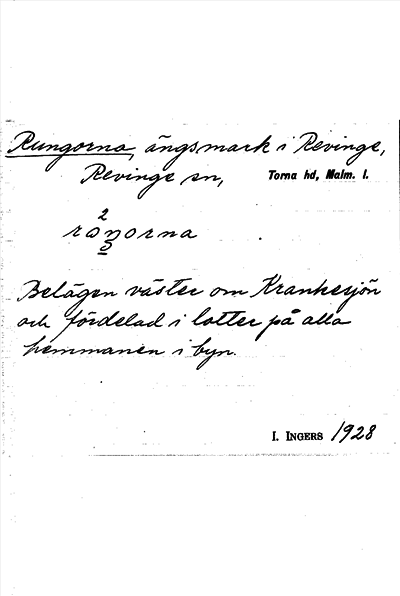 Rungorna, ängsmark i Revinge,
Revinge sn, Torna hd, Malm. l.
2
roŋorna
o
Belägen väster om Krankesjön
och fördelad i lotter på alla
hemmanen i byn.
I. INGERS 1928